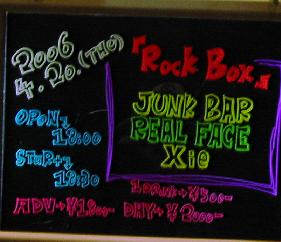 2006
4.20.(THU)
『Rock Box』
JUNK BAR
REAL FACE
Xie
OPEN
18:00
START
18:30
1DRINK ¥500-
ADV ¥1800- DAY ¥2000-